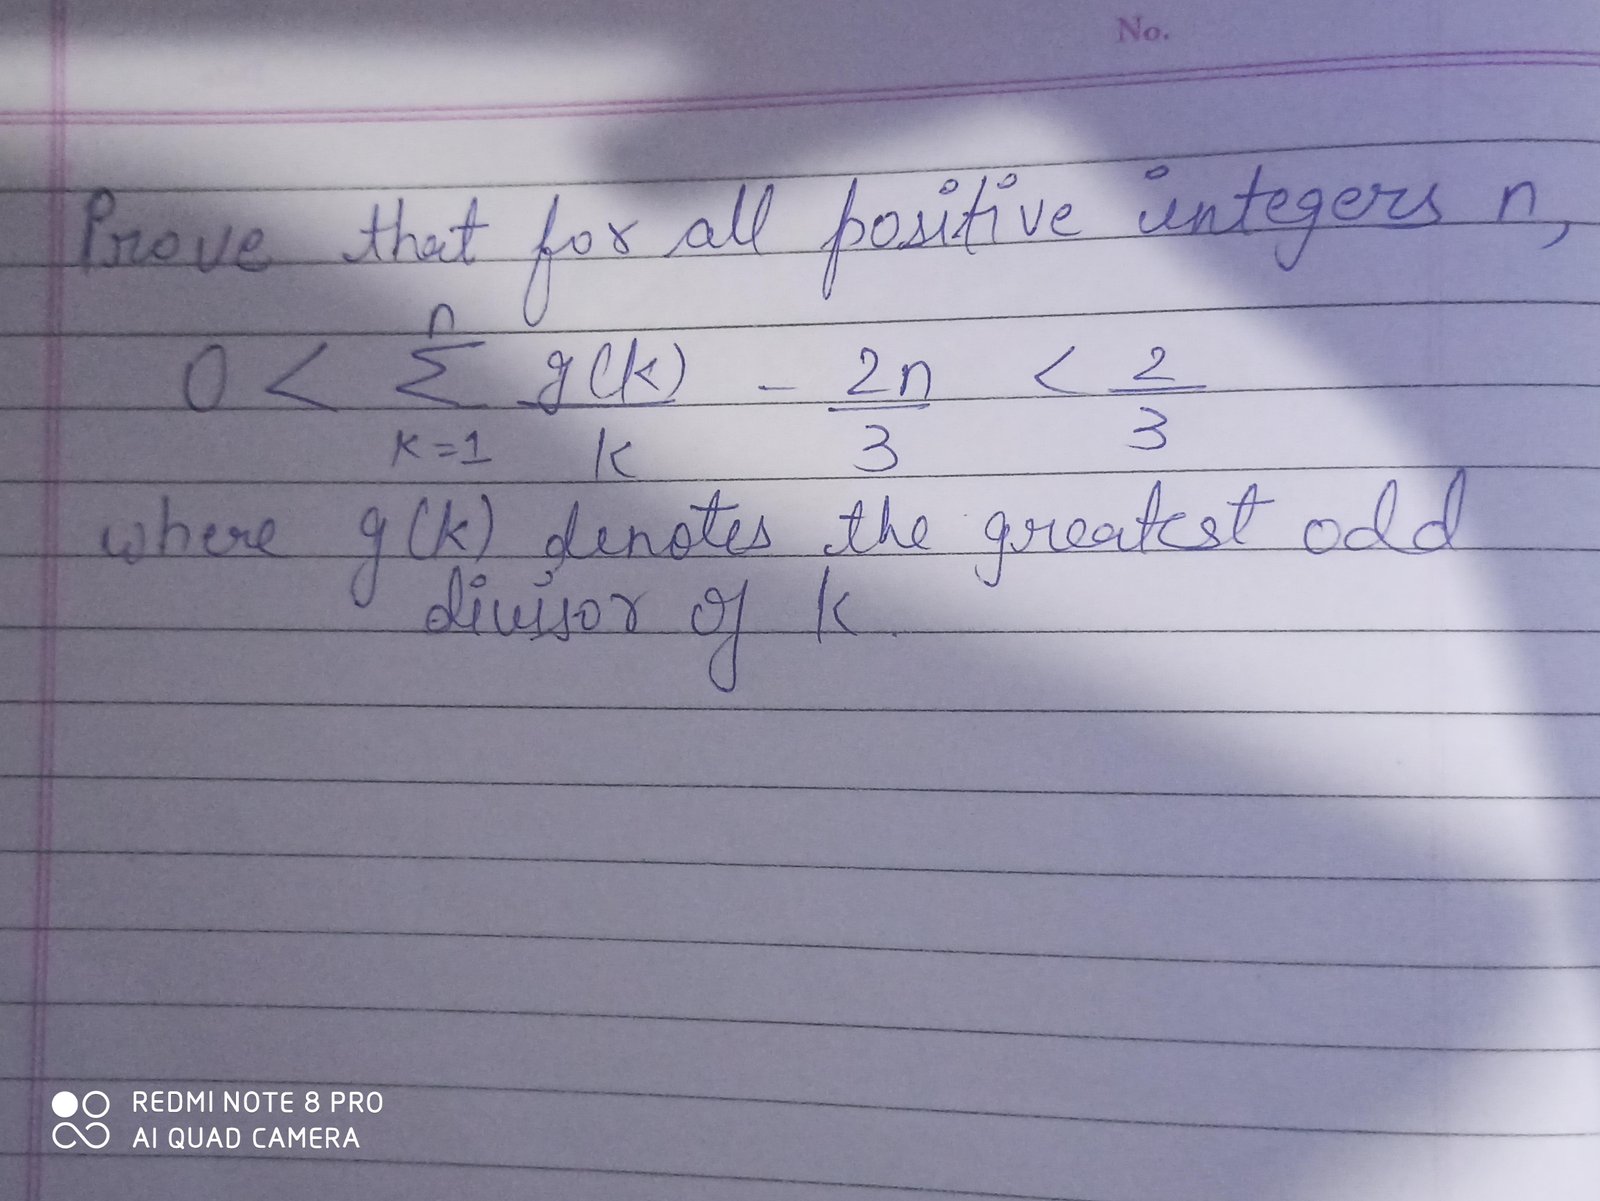 No.
Prove that for all positive integers n,
0 < n∑k=1 g(k)/k - 2n/3 < 2/3
where g(k) denotes the greatest odd
divisor of k.
REDMI NOTE 8 PRO
AI QUAD CAMERA